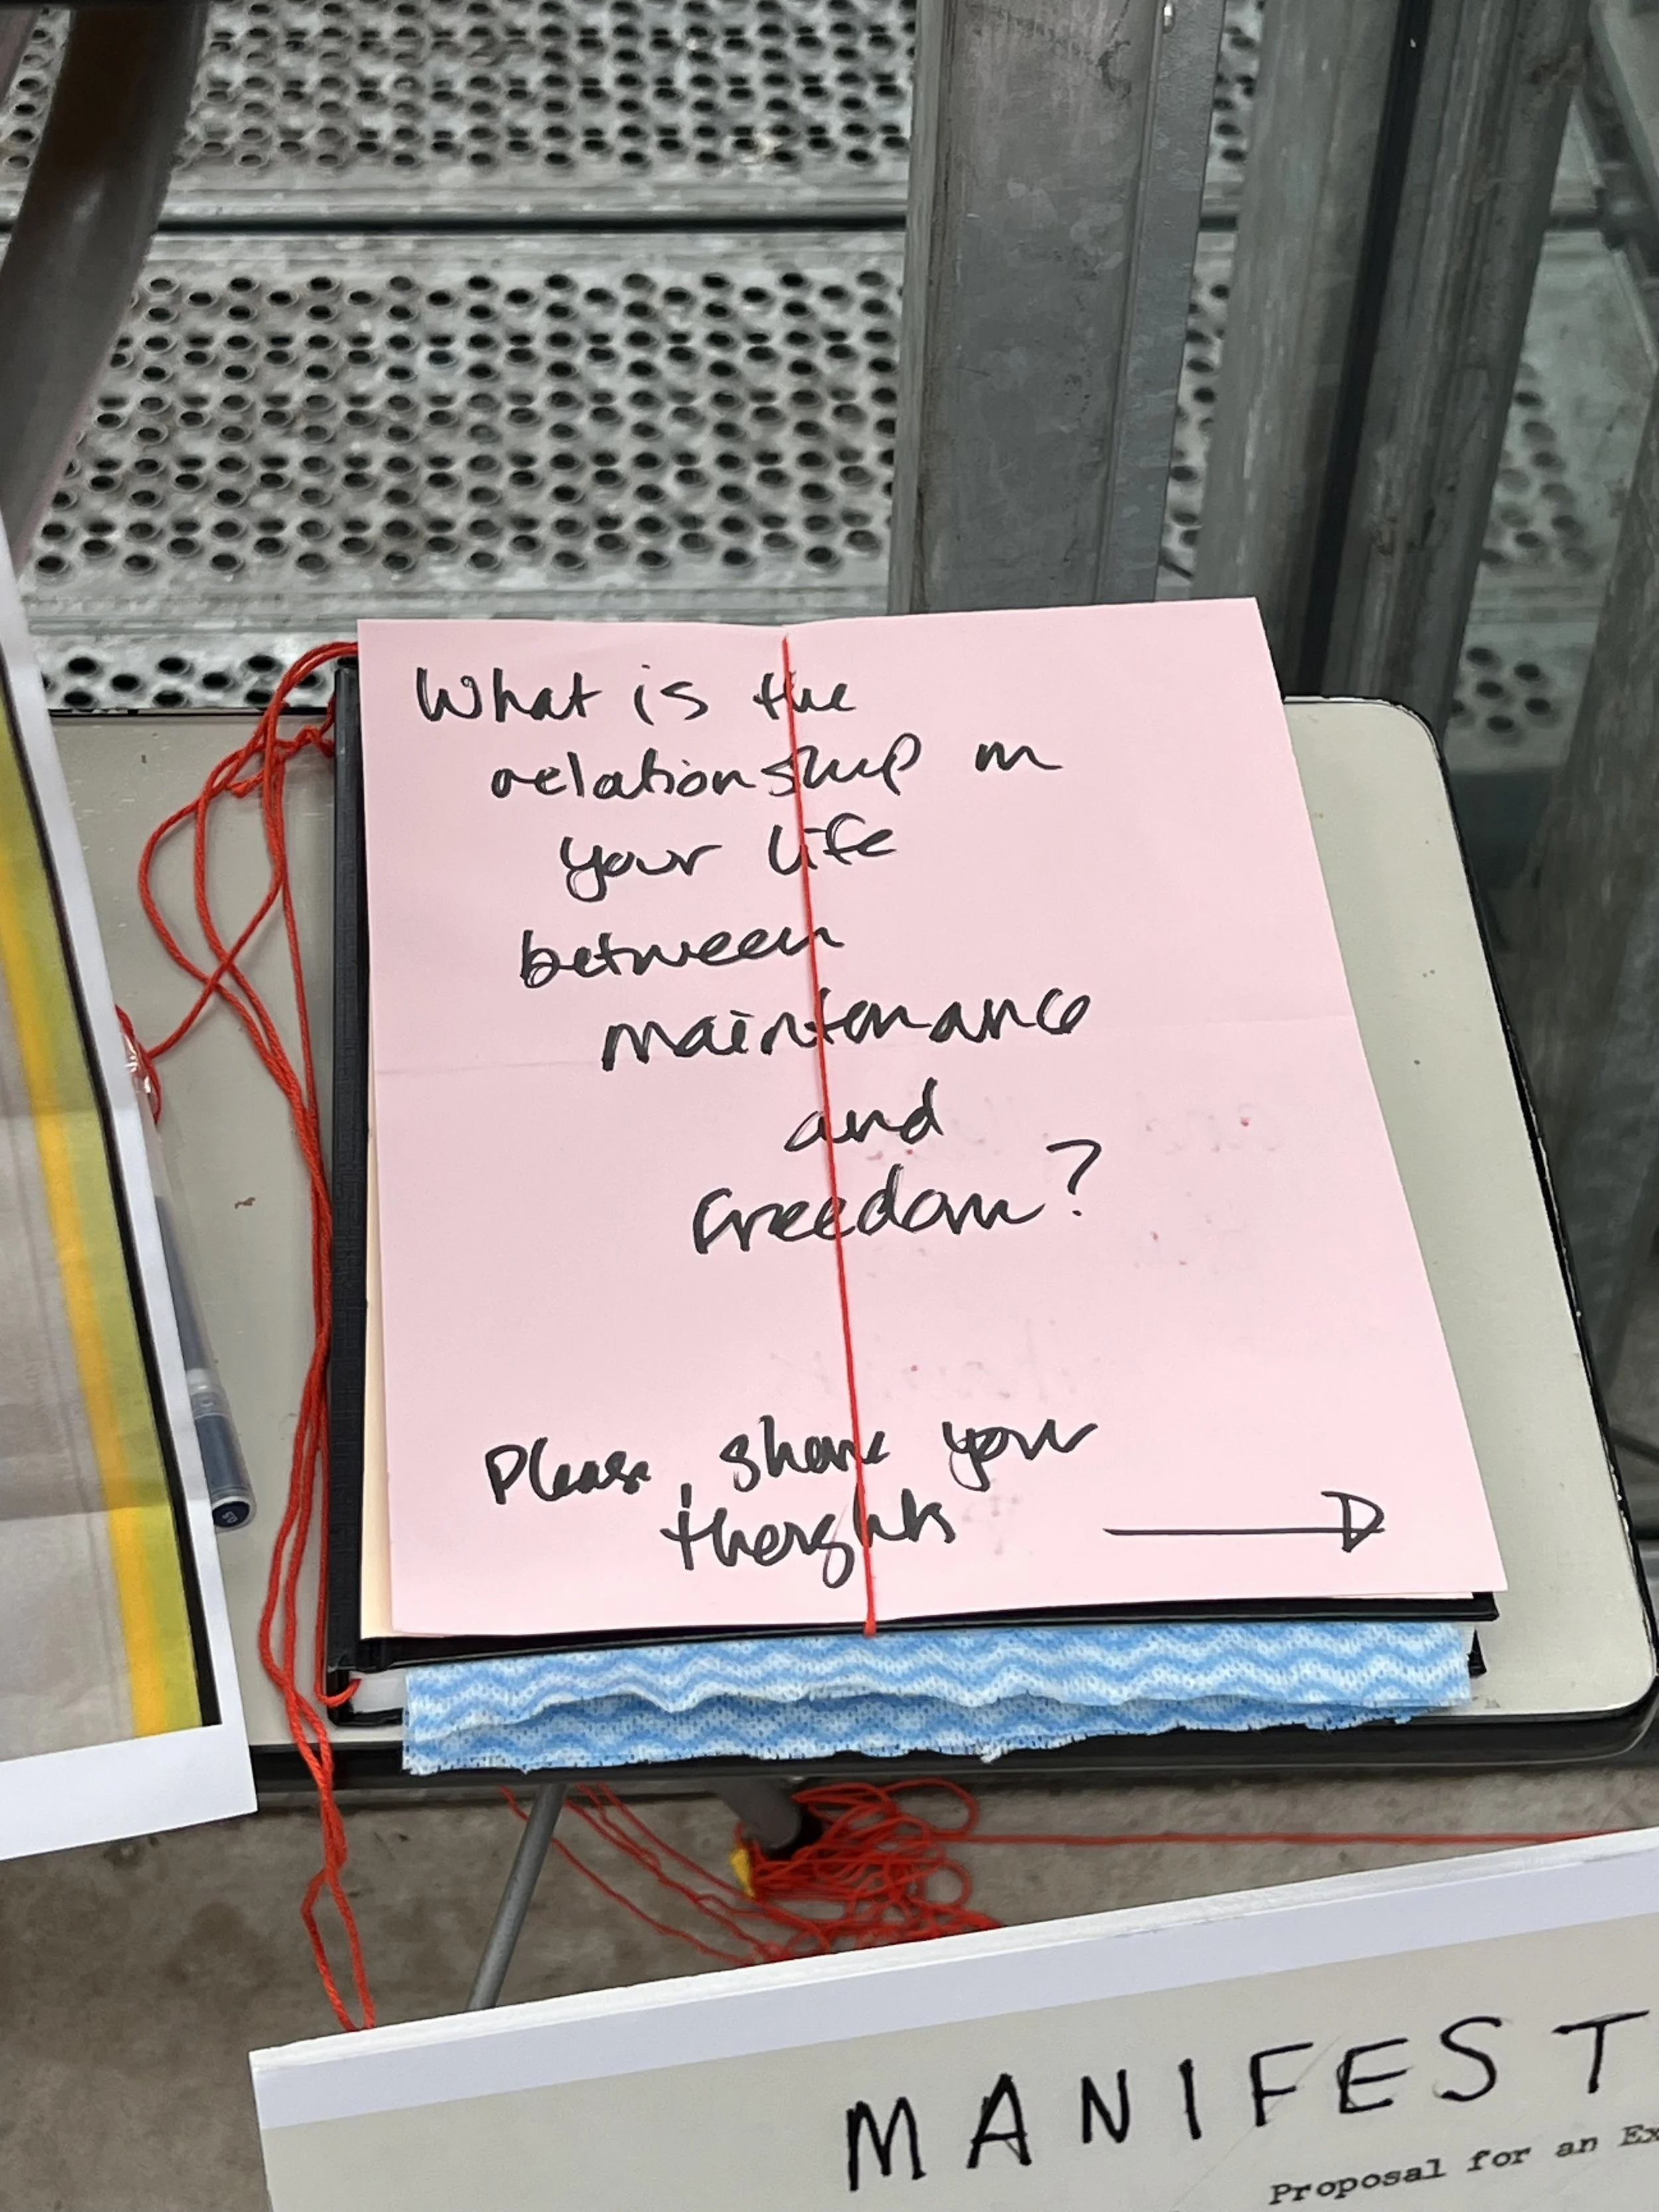 What is the
relationship in
your life
between
maintenance
and
Freedom?
Please, share your
thoughts
MANIFEST
Proposal for an Ex